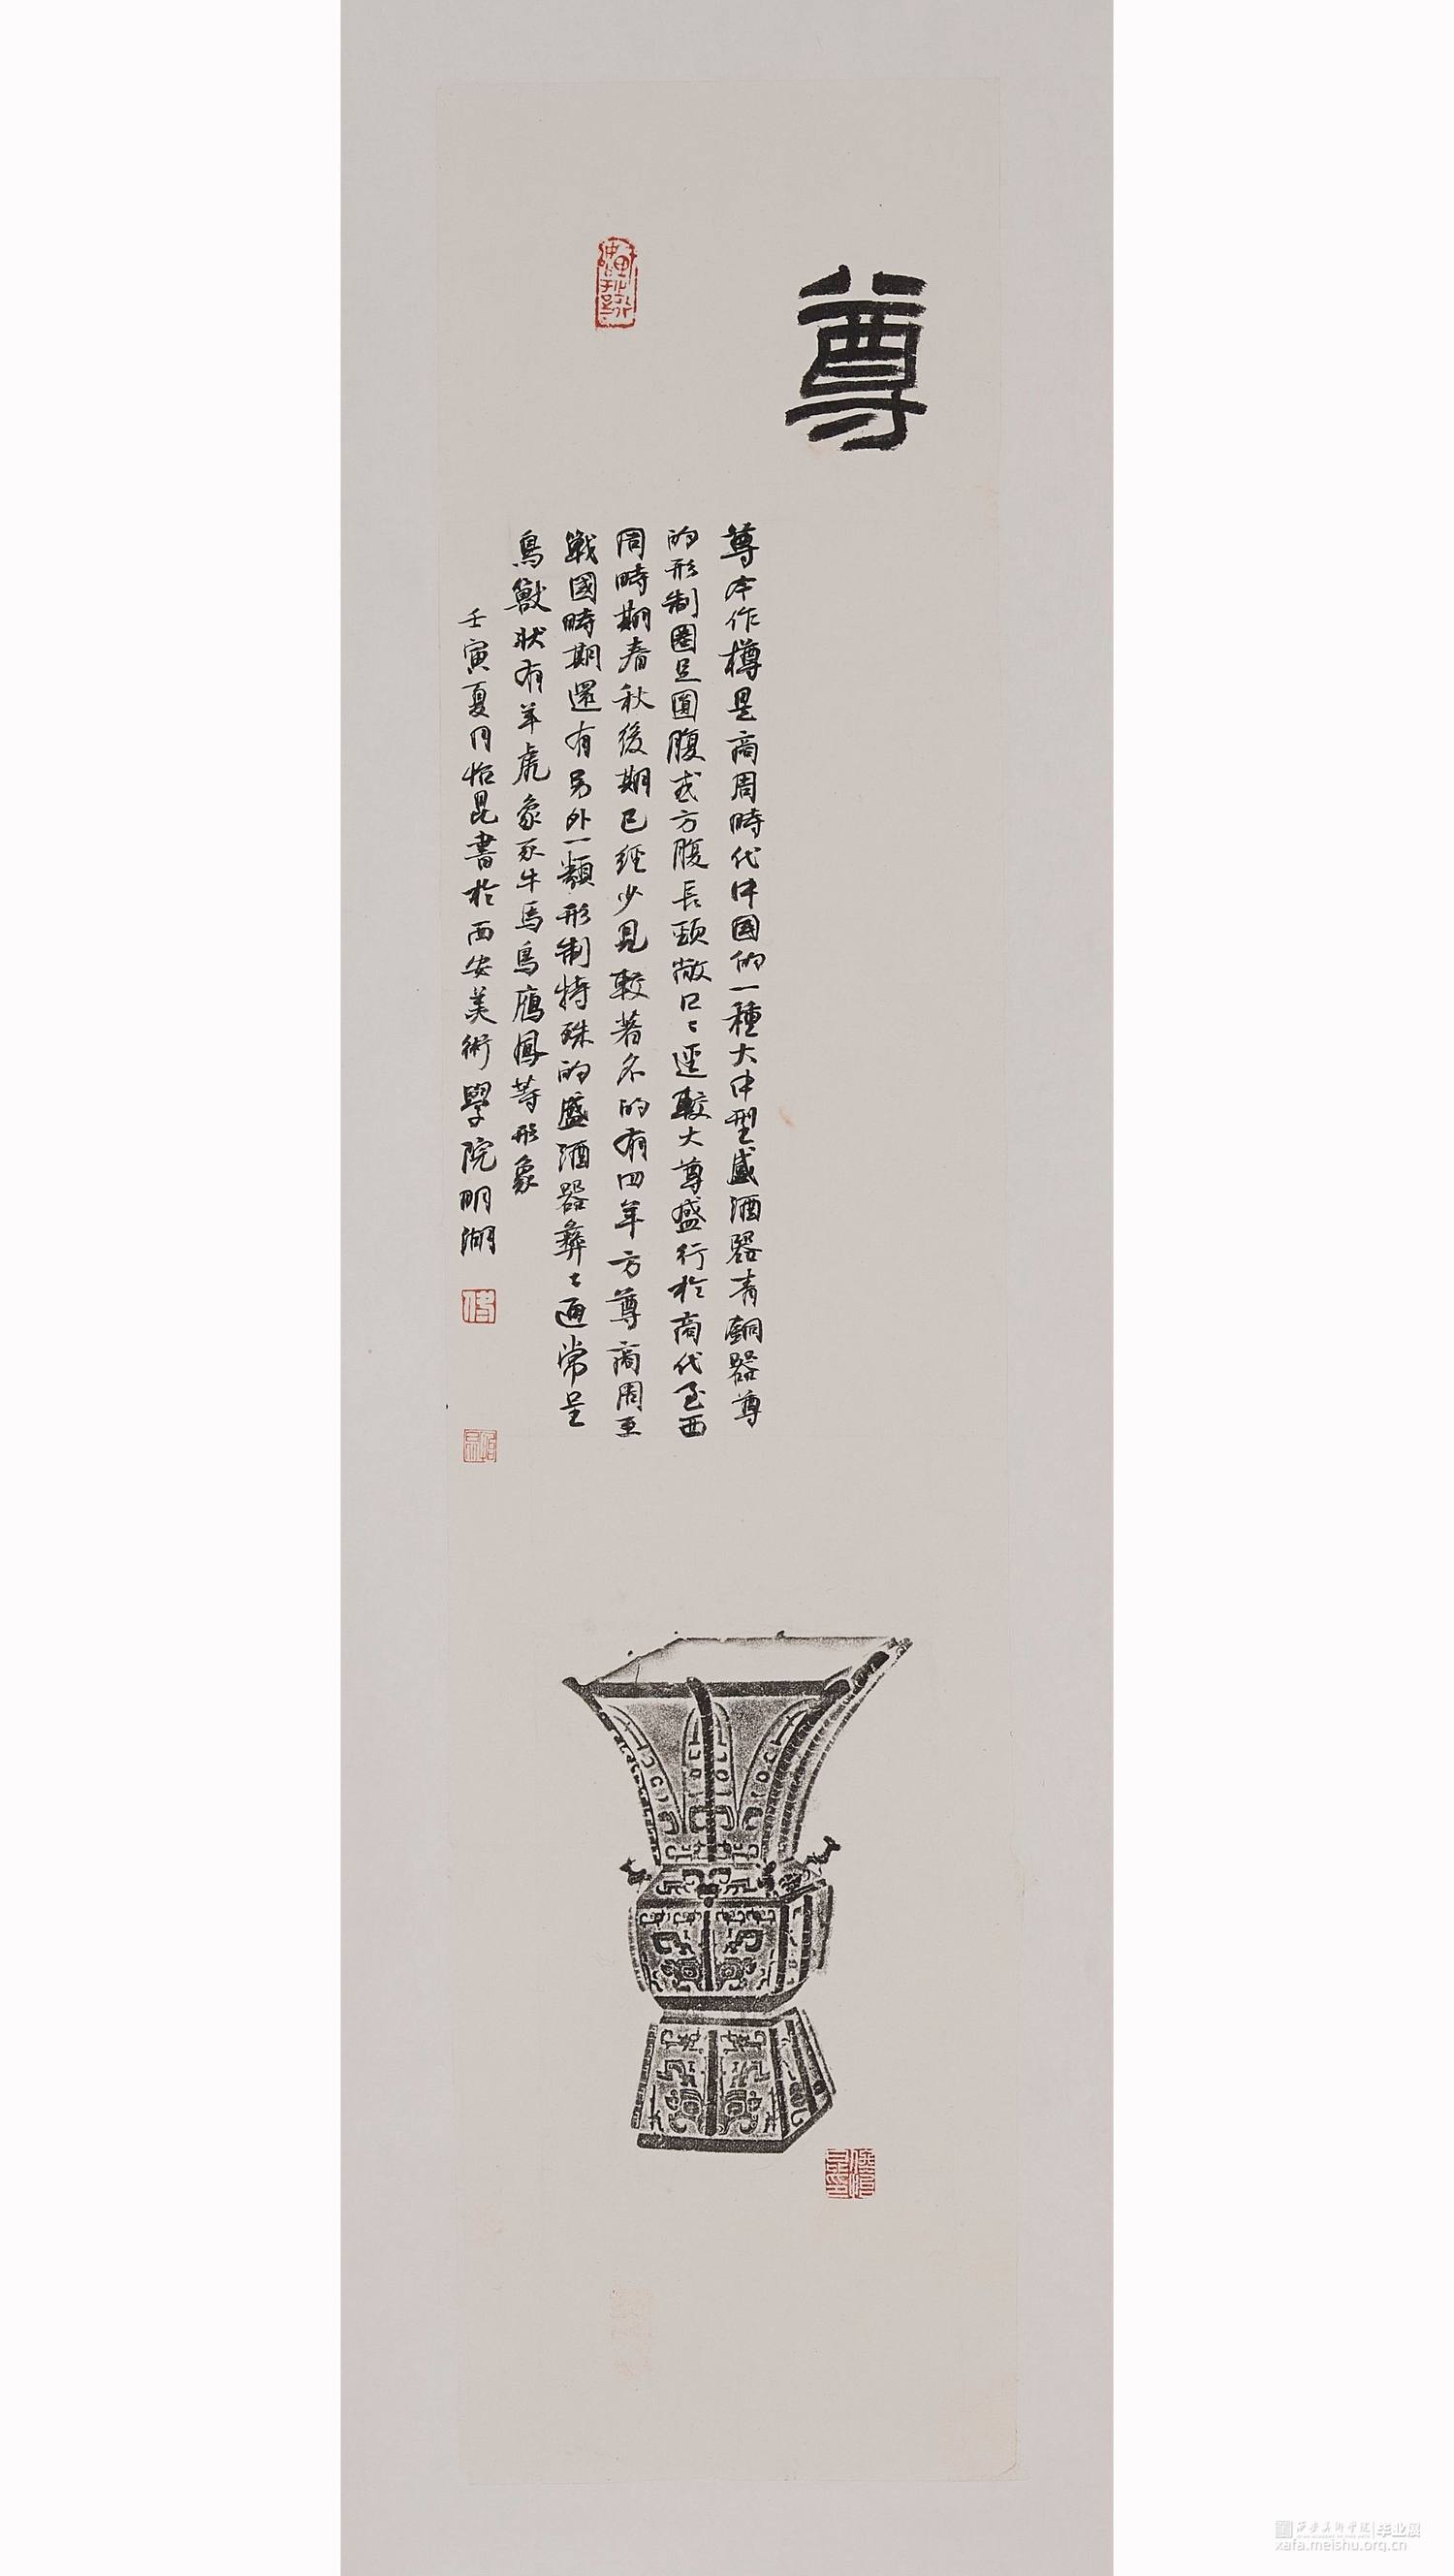 尊
尊本作樽是商周時代中国的一種大中型盛酒器青銅器尊
的形制圈足圓腹或方腹長頸敞口〻逕較大尊盛行於商代至西
周時期春秋後期已經少見較著名的有四羊方尊商周至
戰國時期還有另外一類形制特殊的盛酒器彝〻通常呈
鳥獸狀有羊虎象豕牛馬鳥鴈鳳等形象
壬寅夏月怡昆書於西安美術學院明湖
西安美术学院 毕业展
xafa.meishu.org.cn